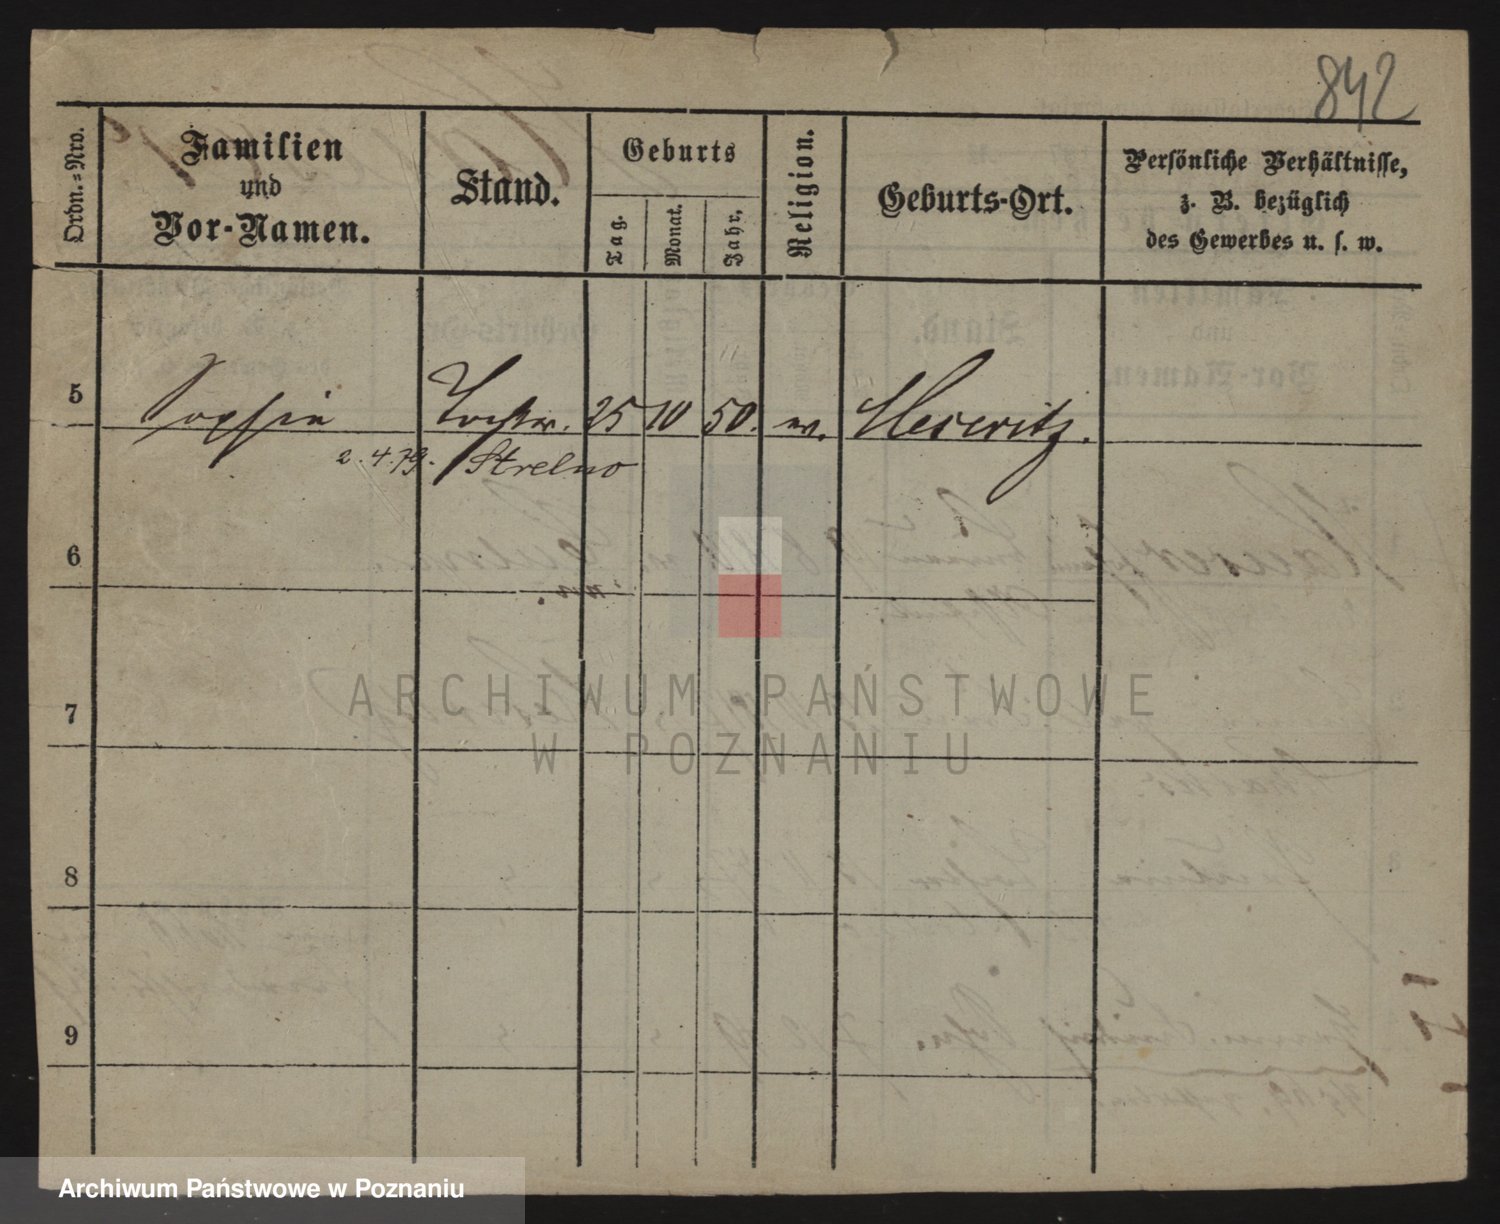 842
Ordn.=Nro.
Familien
und
Vor-Namen.
Stand.
Geburts
Tag.
Monat.
Jahr.
Religion.
Geburts-Ort.
Persönliche Verhältnisse,
z. B. bezüglich
des Gewerbes u. s. w.
5 Sophie Tochter. 25 10 50. Meseritz.
2.4.79. Strelno
6
7
8
9
ARCHIWUM PAŃSTWOWE
W POZNANIU
Archiwum Państwowe w Poznaniu